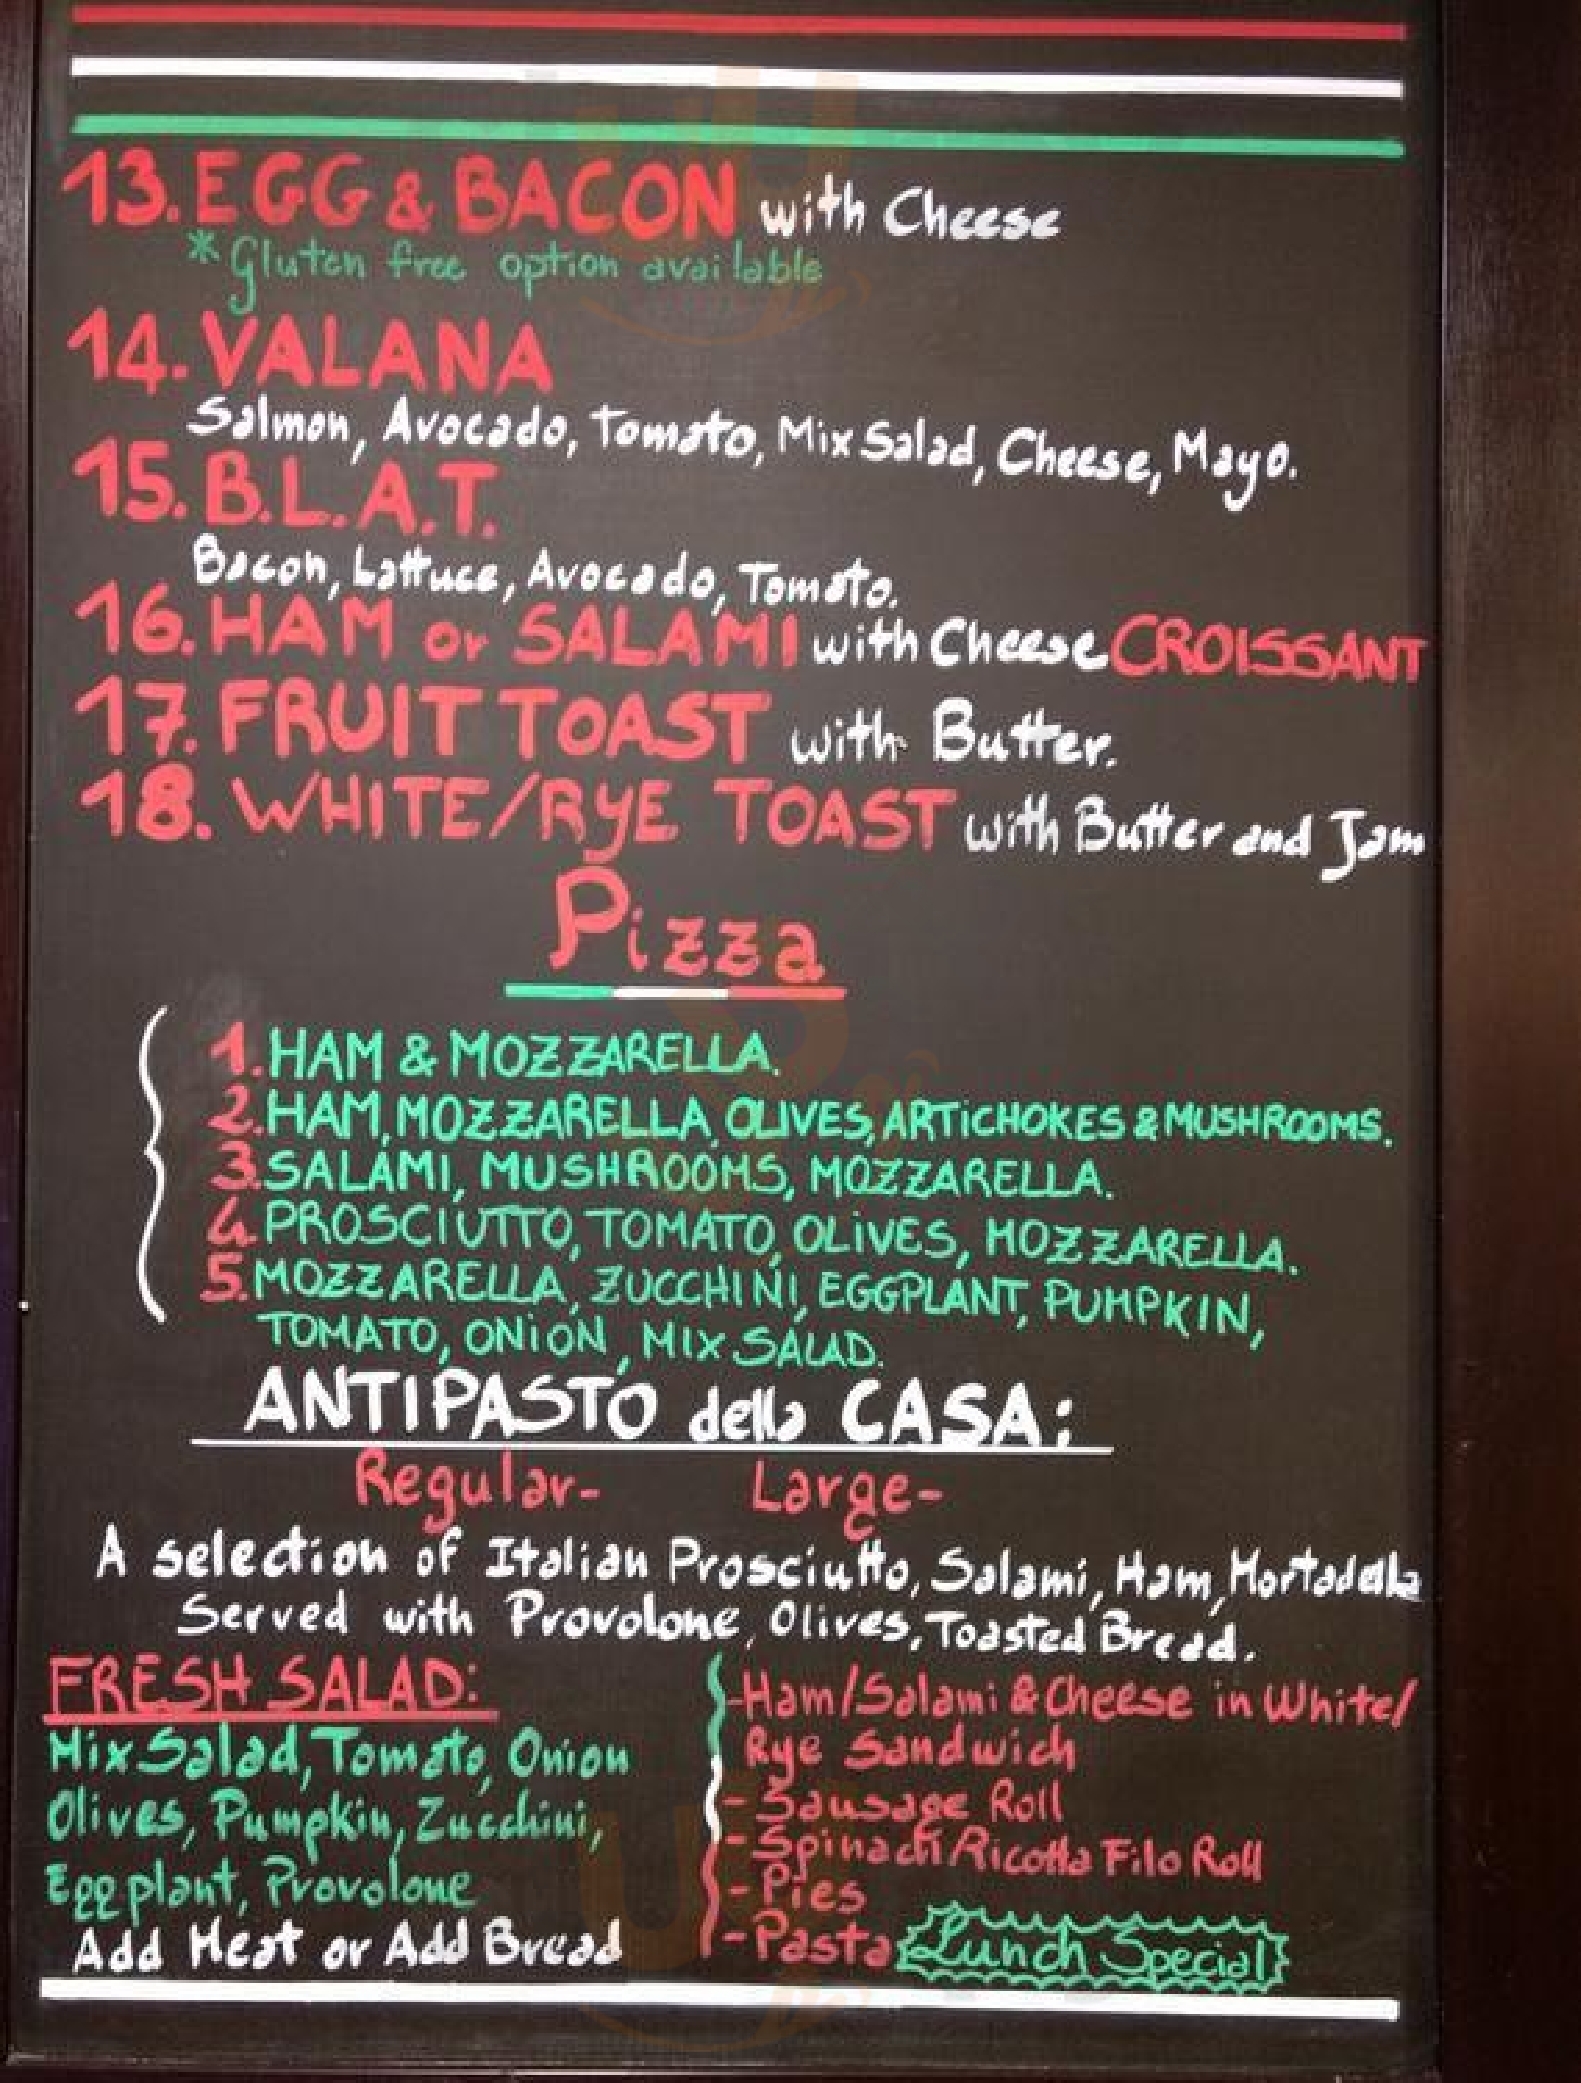 13. EGG & BACON with Cheese
*Gluten free option available
14. VALANA
Salmon, Avocado, Tomato, Mix Salad, Cheese, Mayo.
15. B.L.A.T.
Bacon, Lattuce, Avocado, Tomato.
16. HAM or SALAMI with Cheese CROISSANT
17. FRUIT TOAST with Butter.
18. WHITE/RYE TOAST with Butter and Jam
Pizza
1. HAM & MOZZARELLA.
2. HAM, MOZZARELLA, OLIVES, ARTICHOKES & MUSHROOMS.
3. SALAMI, MUSHROOMS, MOZZARELLA.
4. PROSCIUTTO, TOMATO, OLIVES, MOZZARELLA.
5. MOZZARELLA, ZUCCHINI, EGGPLANT, PUMPKIN,
TOMATO, ONION, MIX SALAD.
ANTIPASTO della CASA:
Regular- Large-
A selection of Italian Prosciutto, Salami, Ham, Mortadella
Served with Provolone, Olives, Toasted Bread.
FRESH SALAD:
Mix Salad, Tomato, Onion
Olives, Pumpkin, Zucchini,
Eggplant, Provolone
Add Meat or Add Bread
-Ham/Salami & Cheese in White/
Rye Sandwich
- Sausage Roll
- Spinach/Ricotta Filo Roll
- Pies
- Pasta Lunch Special